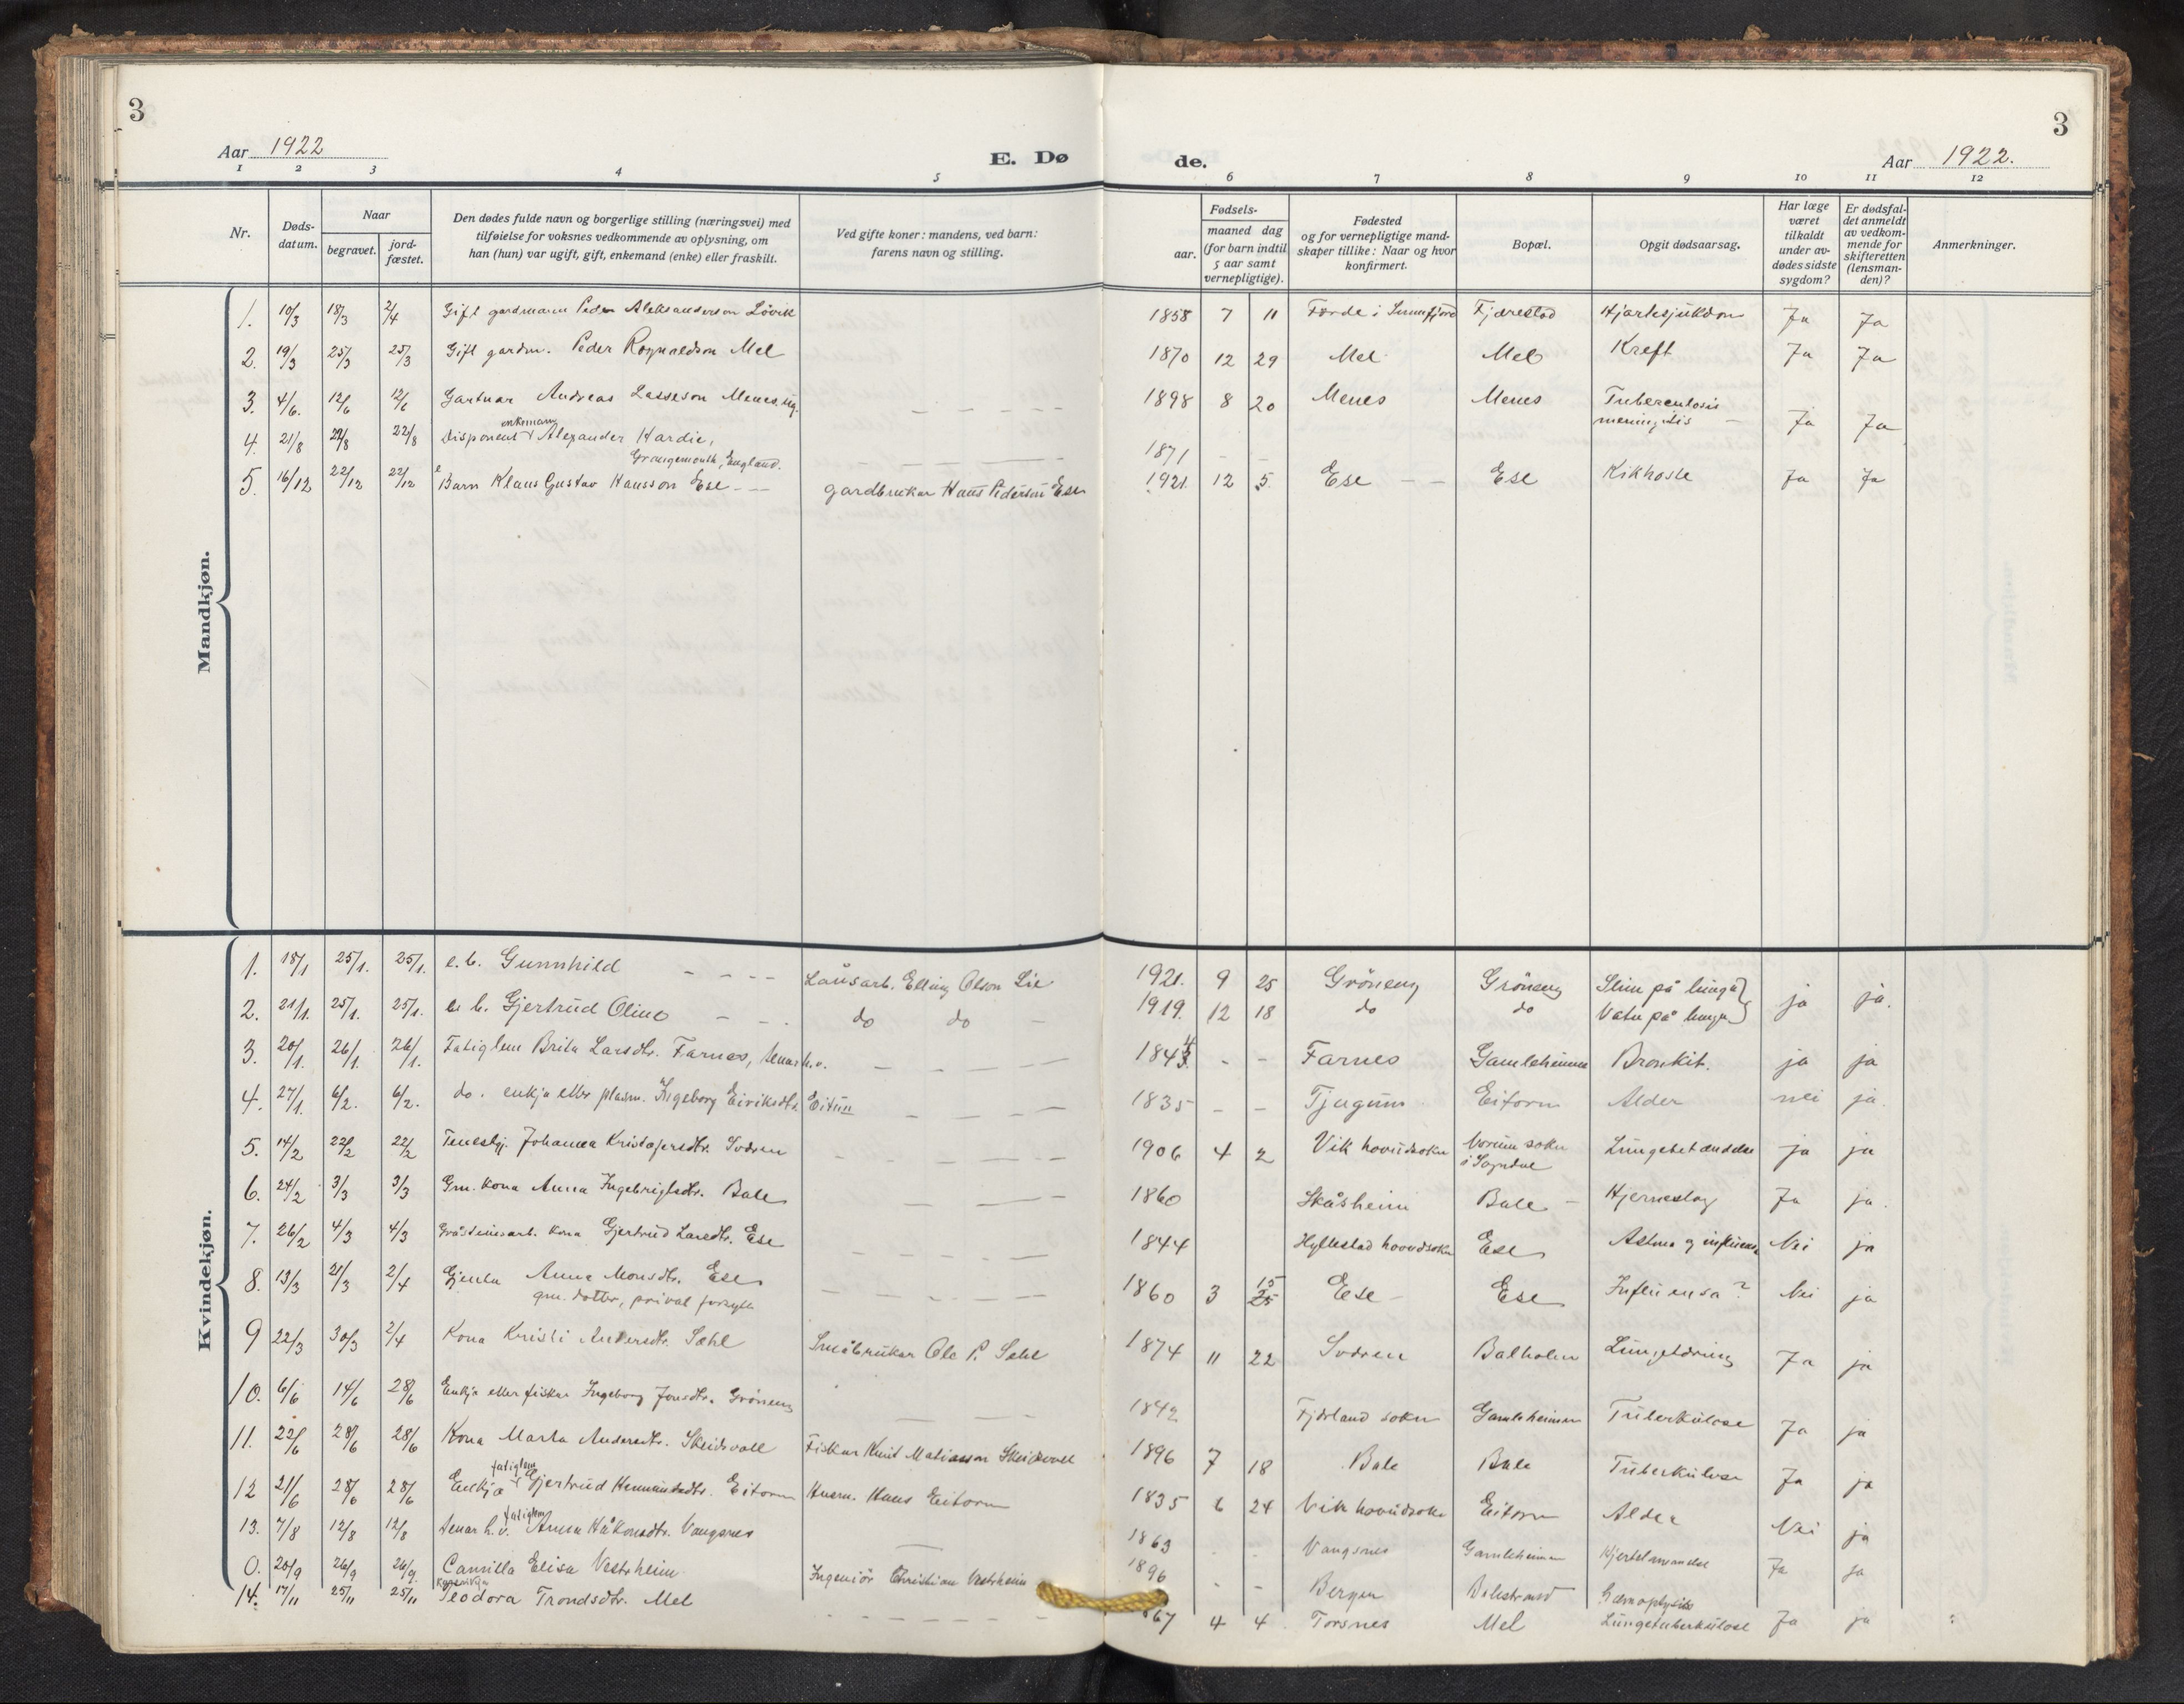 3
Aar 1922
E. Dø
de.
Aar 1922.
3
1 2 3 4 5 6 7 8 9 10 11 12
Nr.
Døds-
datum.
Naar
begravet.
jord-
fæstet.
Den dødes fulde navn og borgerlige stilling (næringsvei) med
tilføielse for voksnes vedkommende av oplysning, om
han (hun) var ugift, gift, enkemand (enke) eller fraskilt.
Ved gifte koner: mandens, ved barn:
farens navn og stilling.
Fødsels-
aar.
maaned dag
(for barn indtil
5 aar samt
vernepligtige).
Fødested
og for vernepligtige mand-
skaper tillike: Naar og hvor
konfirmert.
Bopæl.
Opgit dødsaarsag.
Har læge
været
tilkaldt
under av-
dødes sidste
sygdom?
Er dødsfal-
det anmeldt
av vedkom-
mende for
skifteretten
(lensman-
den)?
Anmerkninger.
Mandkjøn.
1. 10/3 18/3 2/4 Gift gardmann Peder Aleksanderson Lövik 1858 7 11 Førde i Sunnfjord Fjærestad Hjartesjukdom Ja Ja
2. 19/3 25/3 25/3 Gift gardm. Peder Rognaldson Mel 1870 12 29 Mel Mel Kreft Ja Ja
3. 4/6. 12/6 12/6 Gartnar Andreas Lasseson Menes, ug. 1898 8 20 Menes Menes Tuberculosis
meningitis Ja Ja
enkemann
4. 21/8 22/8 22/8 Disponent Alexander Hardie, 1871 - -
Grangemouth, England.
5. 16/12 22/12 22/12 e Barn Klaus Gustav Hansson Ese gardbrukar Hans Pederson Ese 1921 12 5 Ese Ese Kikhoste Ja Ja
Kvindekjøn.
1. 18/1 25/1. 25/1. e. b. Gunnhild Låusarb. Elling Olson Lie 1921. 9 25 Gröneng Gröneng Slim på lunga
2. 21/1. 25/1. 25/1. e. b. Gjertrud Oline do do 1919. 12 18 do do Vatn på lunga ja ja.
3. 20/1. 26/1. 26/1. Fatiglem Brita Larsdtr. Farnes, tenar h.v. 1843 - - Farnes Gamleheimen Bronkit. ja ja
4. 27/1. 6/2. 6/2. do. enkja etter plasm. Ingeborg Eiriksdtr. Eitun 1835 - - Tjugum Eitorn Alder nei ja.
5. 14/2 22/2 22/2 Tenestgj. Johanna Kristofersdtr. Sværen 1906 4 2 Vik hovudsokn Norum sokn
i Sogndal Lungebetændelse ja ja
6. 24/2 3/3 3/3 Grm. kona Anna Ingebrigtsdtr. Bale 1860 Skåsheim Bale Hjerneslag Ja ja.
7. 26/2 4/3 4/3 Gråsteinsarb. kona Gjertrud Larsdtr. Ese 1844 Hyllestad hovudsokn Ese Astma og influensa Nei ja
8. 13/3 21/3 2/4 Gjenta Anna Monsdtr. Ese 1860 3 15/25 Ese Ese Influensa? Nei ja
grm. dotter, privat forsytt
9 22/3 30/3 2/4 Kona Kristi Andersdtr. Sæhl Småbrukar Ole P. Sæhl 1874 11 22 Sværen Balholm Lungetæring Ja ja
10. 6/6 14/6 28/6 Enkja etter fiskar Ingeborg Jonsdtr. Gröneng 1842 Fjærland sokn Gamleheimen Tuberkulose Ja ja
11. 22/6 28/6 28/6 Kona Marta Andersdtr. Skeidsvoll Fiskar Knut Matiasson Skeidsvoll 1896 7 18 Bale Bale Tuberkulose Ja ja
fatiglem
12 21/6 28/6 28/6 Enkja Gjertrud Hermundsdtr. Eitorn Husm. Hans Eitorn 1835 6 24 Vik hovudsokn Eitorn Alder Nei ja
fatiglem
13. 7/8 12/8 12/8 tenar h. v. Anna Håkonsdtr. Vangsnes 1863 - - Vangsnes Gamleheimen Hjertelammelse Ja ja
0. 20/9 26/9 26/9. Camilla Elisa Vestrheim Ingeniör Christian Vestrheim 1896 - - Bergen Balestrand Hæmoptysis
14. 17/11 25/11 25/11 Teodora Trondsdtr. Mel 867 4 4 Torsnes Mel Lungetuberkulose Ja ja